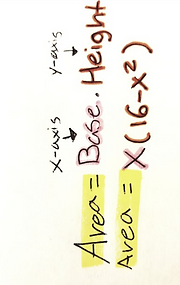 x-axis y-axis
Area = Base · Height
Area = x(16-x²)